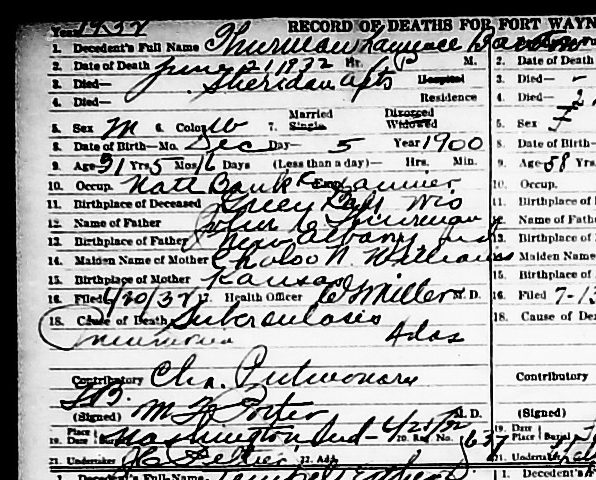 Year 1932 RECORD OF DEATHS FOR FORT WAYN
1. Decedent's Full Name Thurman Lawrence 
2. Date of Death June 21 1932 Hr. P M. 2. Date of Death
3. Died— Sheridan Apts Hospital 3. Died— -
4. Died— Residence 4. Died— 2
5. Sex M 6. Color W 7. Married Single Divorced Widowed 5. Sex F
8. Date of Birth—Mo. Dec Day— 5 Year 1900 8. Date of Birth—
9. Age 31 Yrs. 5 Mos. 16 Days (Less than a day)— Hrs. Min. 9. Age 58 Yrs.
10. Occup. Natl Bank Examiner 10. Occup.
11. Birthplace of Deceased Green Bay Wis 11. Birthplace of
12. Name of Father John C Thurman 12. Name of Father
13. Birthplace of Father New Albany Ind 13. Birthplace of
14. Maiden Name of Mother N. Williams 14. Maiden Name
15. Birthplace of Mother Kansas 15. Birthplace of
16. Filed 6/30/32 17. Health Officer Miller M. D. 16. Filed 7-13
18. Cause of Death Tuberculosis 18. Cause of Dea
Pneumonia
Contributory Chr. Pulmonary Contributory
TB.
(Signed) M F Porter M. D. (Signed)
19. Place Date Washington, Ind- 6/23/32 20. Rec. No. 637 19. Date Place Burial
21. Undertaker 22. Add. 21. Undertaker
1. Decedent's Full Name 1. Decedent's F